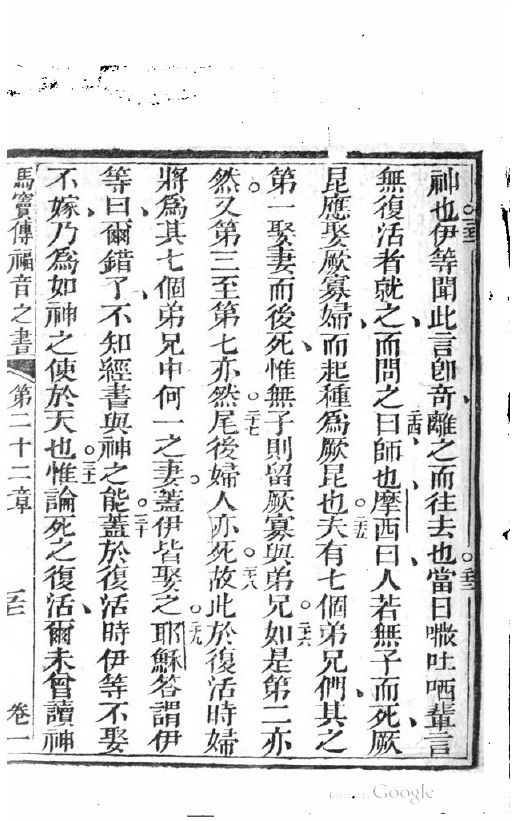 神也伊等聞此言卽奇離之而往去也當日㘔吐哂輩言
無復活者就之而問之曰師也摩西曰人若無子而死厥
昆應娶厥寡婦而起種爲厥昆也夫有七個弟兄們其之
第一娶妻而後死惟無子則留厥寡與弟兄如是第二亦
然又第三至第七亦然尾後婦人亦死故此於復活時婦
將爲其七個弟兄中何一之妻蓋伊皆娶之耶穌答謂伊
等曰爾錯了不知經書與神之能蓋於復活時伊等不娶
不嫁乃爲如神之使於天也惟論死之復活爾未曾讀神
馬竇傳福音之書 第二十二章 卷一
Google